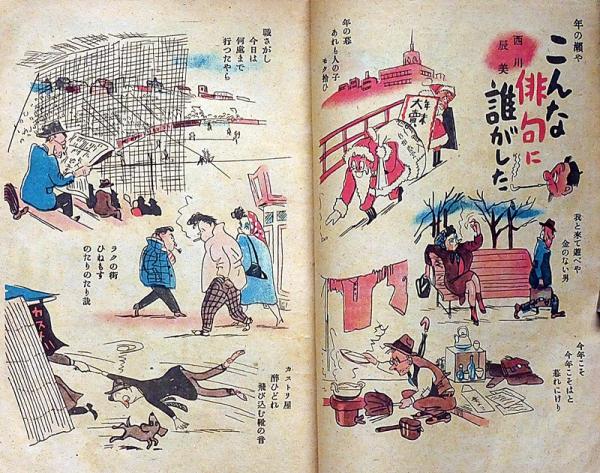 年の瀬や
こんな
俳句に
誰がした
西川
辰美
年の暮
あれも人の子
モク拾ひ
年末
大賣
我と来て遊べや
金のない男
今年こそ
今年こそはと
暮れにけり
職さがし
今日は
何處まで
行つたやら
ラクの街
ひねもす
のたりのたり哉
カストリ屋
醉ひどれ
飛び込む靴の音
カストリ